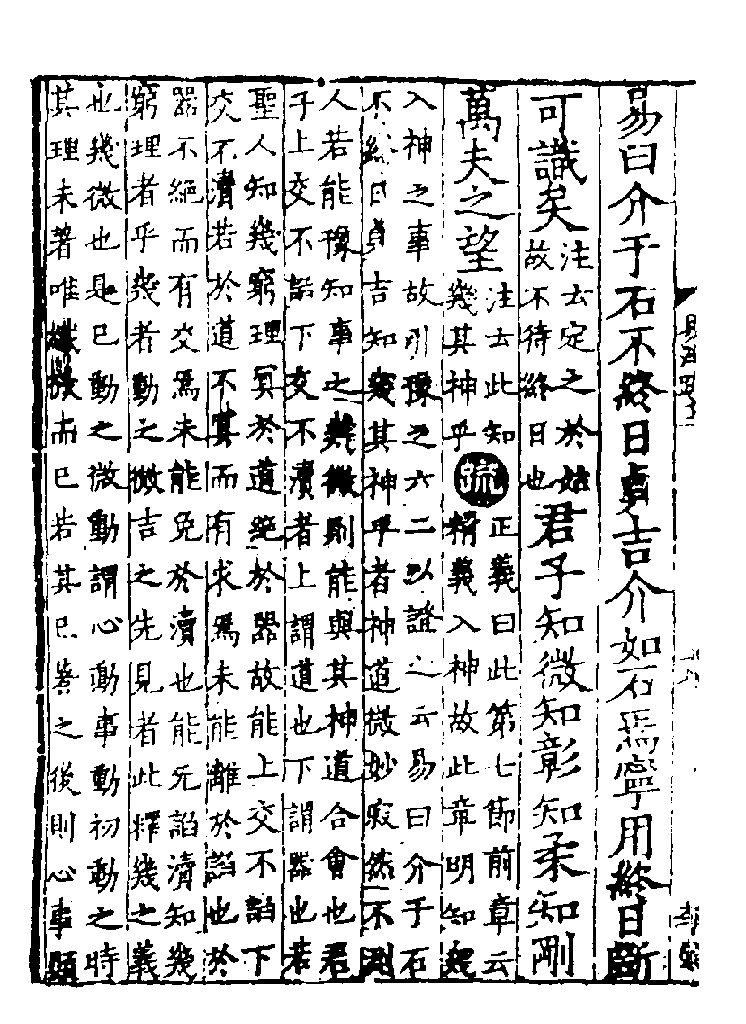 易曰介于石不終日貞吉介如石焉寧用終日斷
可識矣注云定之於始故不待終日也君子知微知彰知柔知剛
萬夫之望注云此知幾其神乎疏正義曰此第七節前章云精義入神故此章明知幾
入神之事故引豫之六二以證之云易曰介于石
不終日貞吉知幾其神乎者神道微妙寂然不測
人若能豫知事之幾微則能與其神道合會也君
子上交不諂下交不瀆者上謂道也下謂器也若
聖人知幾窮理冥於道絕於器故能上交不諂下
交不瀆若於道不冥而有求焉未能離於諂也於
器不絕而有交焉未能免於瀆也能无諂瀆知幾
窮理者乎幾者動之微吉之先見者此釋幾之義
也幾微也是已動之微動謂心動事動初動之時
其理未著唯纖微而已若其已著之後則心事顯